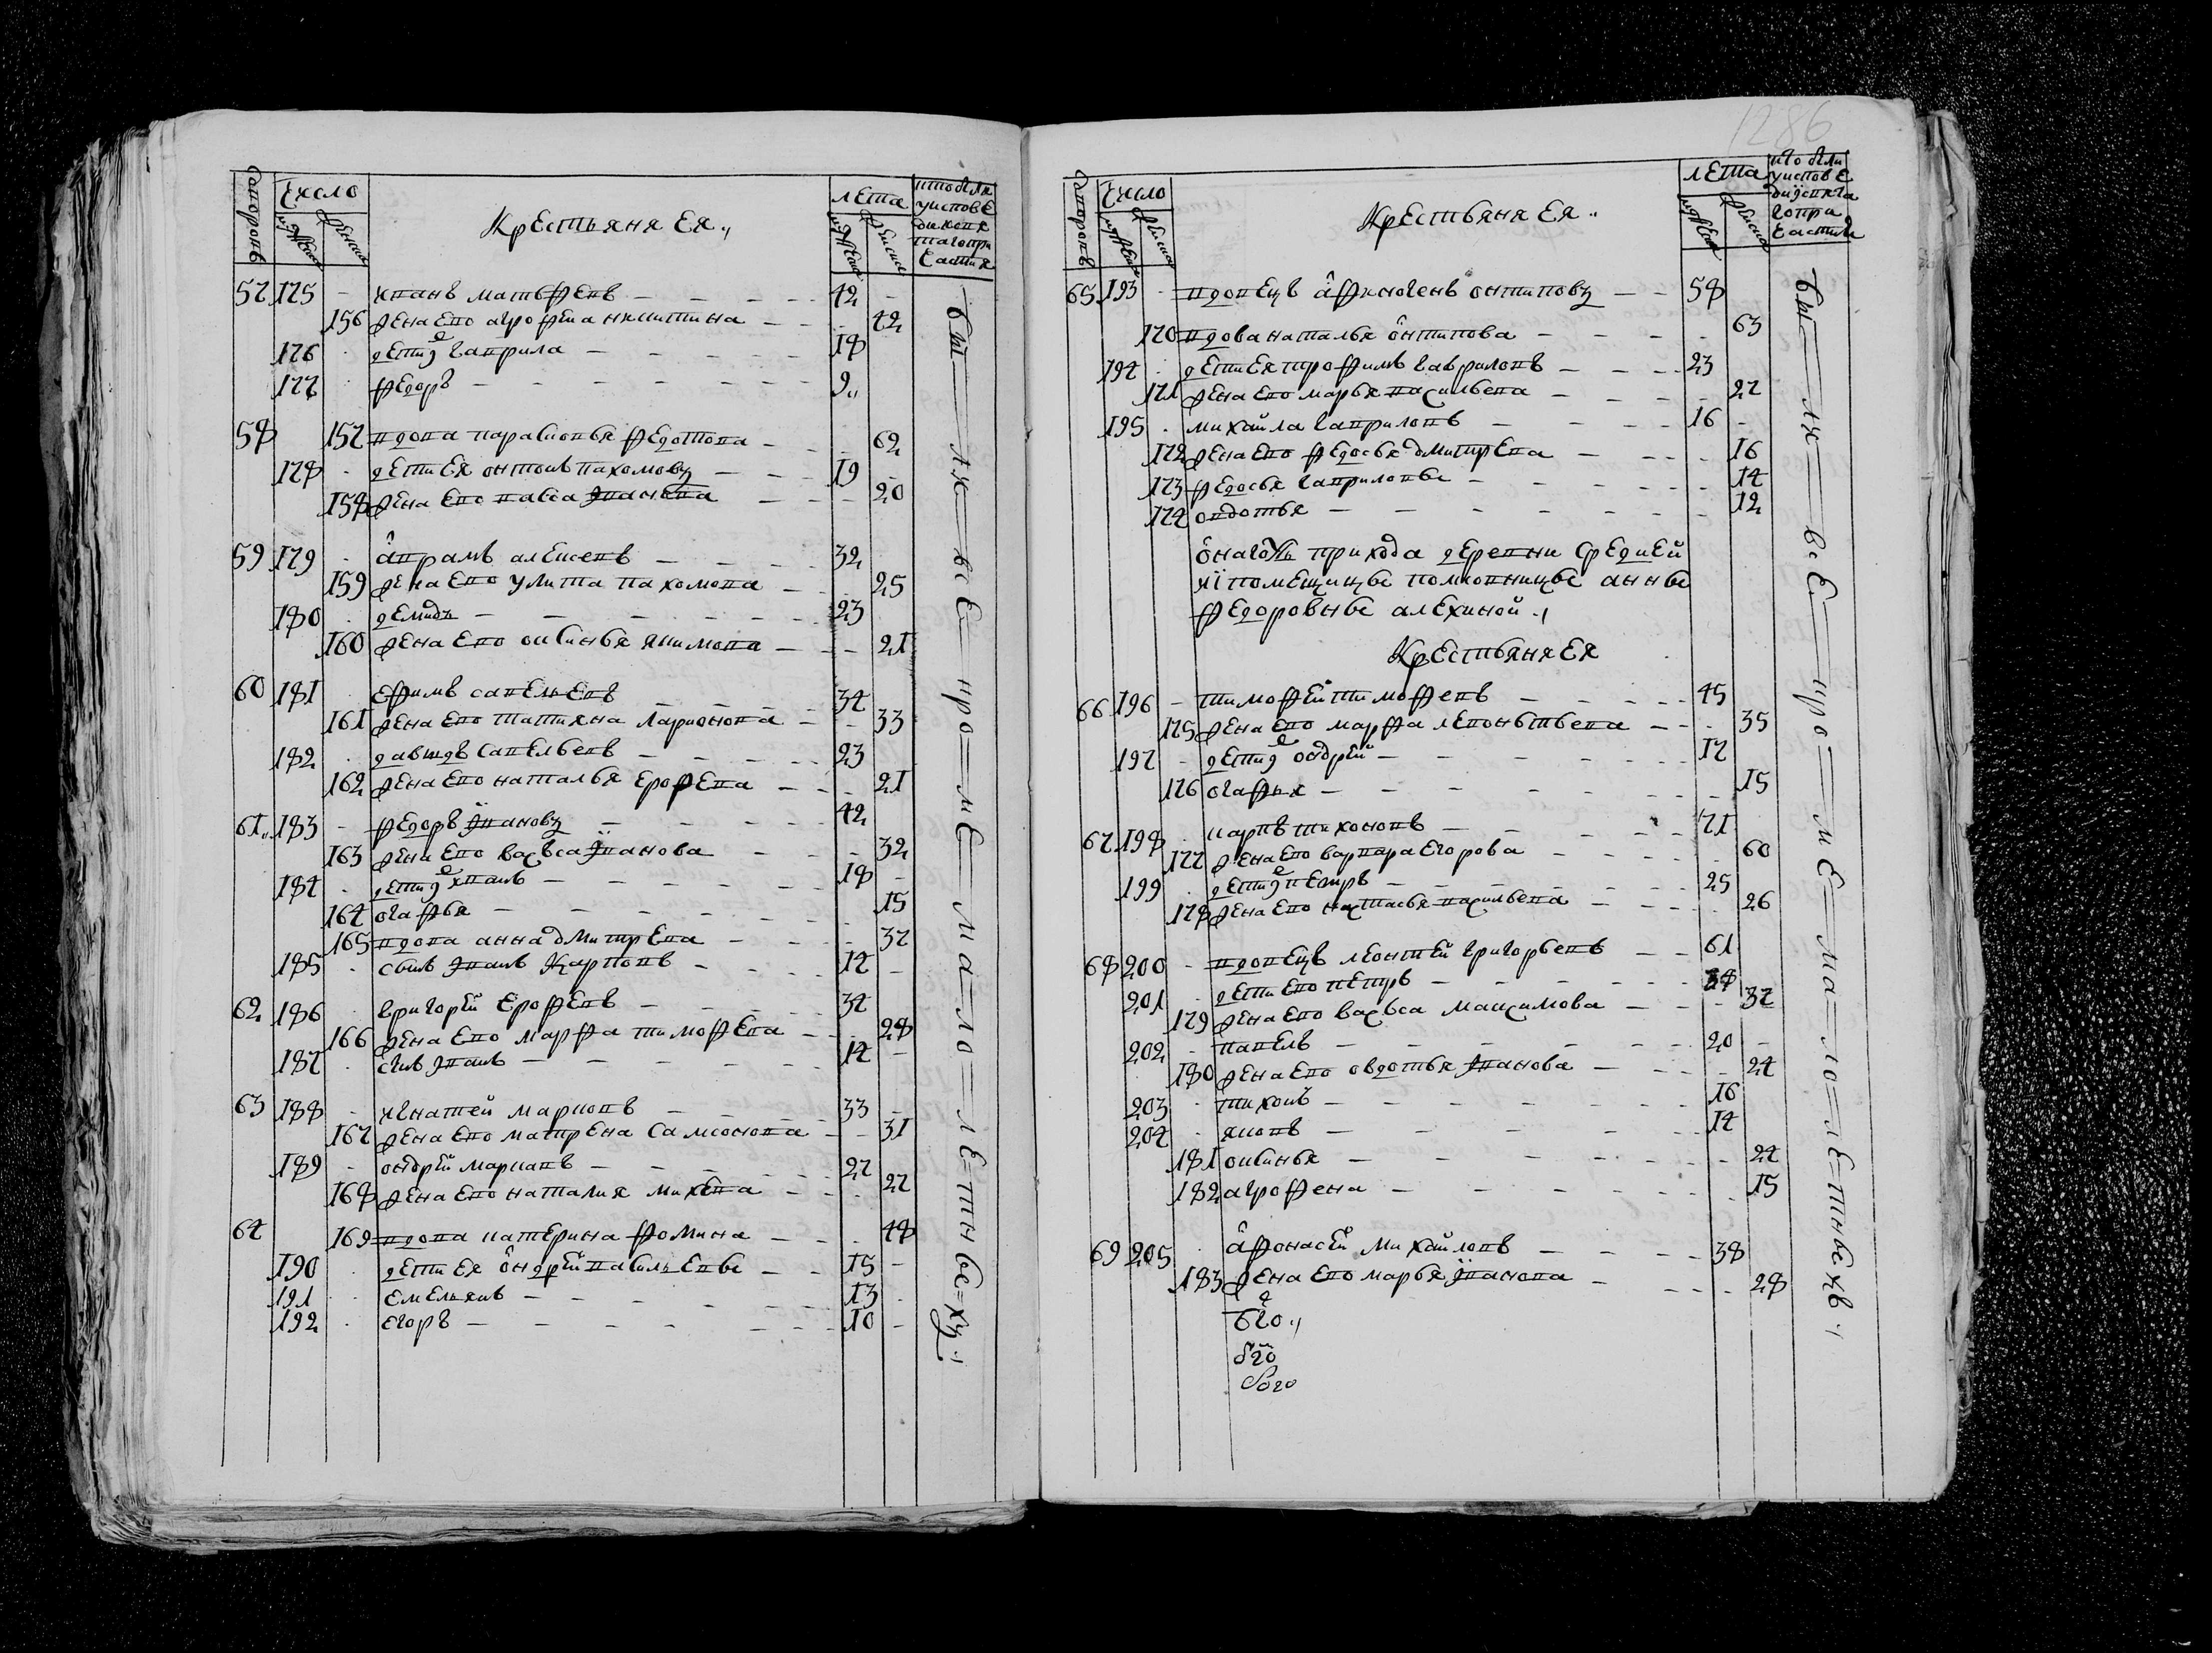 1286
дворовъ
Число
мужеска
женска
Крестьяня Ея
лета
мужеска
женска
кто были
у исповеди
и хто
причастия
57 175 - иванъ матьфеевъ - 42 -
156 жена ево агрофена никитина - 42
176 дети гаврила - 18
177 федоръ - 9
58 157 вдова парасковья федотова - 62
178 дети ея онтонъ пахомовъ - 19
158 жена ево васса иванова - 20
59 179 аврамъ алексеевъ - 32
159 жена ево улита пахомова - 25
180 демидъ - 23
160 жена ево оксинья якимова - 21
60 181 ефимъ савельевъ - 34
161 жена ево татияна ларионова - 33
182 давыдъ савельевъ - 23
162 жена ево наталья ерофеева - 21
61 183 - федоръ ивановъ - 42
163 жена ево васса иванова - 32
184 дети иванъ - 18
164 огафья - 15
165 вдова анна дмитреева - 37
185 сынъ иванъ карповъ - 14 -
62 186 григорей ерофеевъ - 34
166 жена ево марфа тимофеева - 28
187 сынъ иванъ - 14 -
63 188 - игнатей марковъ - 33 -
167 жена ево матрена самсонова - 31
189 - ондрей марковъ - 27
168 жена ево наталия михеева - 27
64 169 вдова катерина фомина - 48
190 дети ея ондрей васильевъ - 15 -
191 емельянъ - 13
192 егоръ - 10 -
бы ля всЕ нро мЕ ма ло лЕ тнъе хъ
дворовъ
Число
мужеска
женска
Крестьяня Ея
лета
мужеска
женска
65 193 - вдовецъ афиногенъ онтиповъ - 58
170 вдова наталья онтипова - 63
194 дети ея трофимъ гавриловъ - 23
171 жена ево марья васильева - 27
195 михайла гавриловъ - 16 -
172 жена ево федосья дмитреева - 16
173 федосья гавриловы - 14
174 овдотья - 12
онагожъ прихода деревни средней
помещицы полковницы анны
федоровны алехиной
Крестьяня Ея
66 196 - тимофей тимофеевъ - 45
175 жена ево марфа леоньтьева - 35
197 - дети ондрей - 17
176 огафья - 15
67 198 карпъ тихоновъ - 71
177 жена ево варвара егорова - 60
199 дети петръ - 25
178 жена ево настасья васильева - 26
68 200 - вдовецъ леонтей григорьевъ - 61
201 дети ево петръ - 38
179 жена ево васса максимова - 37
202 - павелъ - 20 -
180 жена ево овдотья иванова - 24
203 тихонъ - 16
204 яковъ - 14
181 оксинья - 24
182 агрофена - 15
69 205 афонасей михайловъ - 38
183 жена ево марья иванова - 28
бы ля всЕ нро мЕ ма ло лЕ тнъе хъ